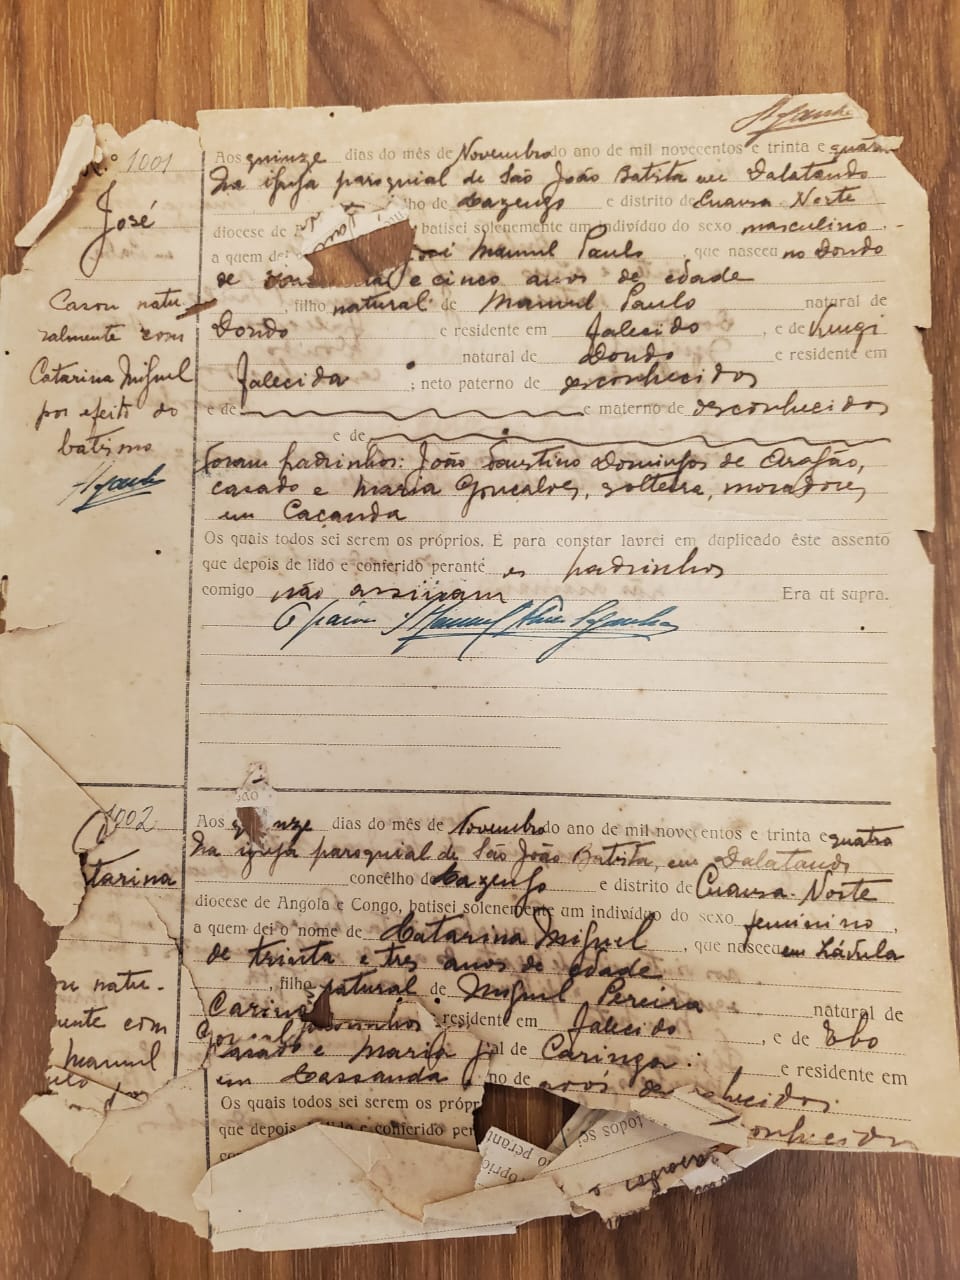 N.º 1001
José
Casou natu-
ralmente com
Catarina Miguel
por efeito do
batismo
Aos quinze dias do mês de Novembro do ano de mil novecentos e trinta e quatro
na igreja paroquial de São João Batista em Dalatando
lho de Cazengo e distrito de Cuanza Norte
diocese de batisei solenemente um indivíduo do sexo masculino
a quem dei José Manuel Paulo, que nasceu no Dondo
de e cinco anos de edade
, filho natural de Manuel Paulo natural de
Dondo e residente em Falecido, e de
natural de Dondo e residente em
Falecida; neto paterno de desconhecidos
e de e materno de desconhecidos
e de
Foram padrinhos: João Faustino Domingos de Aragão,
casado e Maria Gonçalves, solteira, moradores
em Cacanda
Os quais todos sei serem os próprios. E para constar lavrei em duplicado êste assento
que depois de lido e conferido perante os padrinhos
comigo não assinam Era ut supra.
1002
tarina
natu-
mente com
Manuel
Aos quinze dias do mês de Novembro do ano de mil novecentos e trinta e quatro
na igreja paroquial de São João Batista, em Dalatando
concelho de Cazengo e distrito de Cuanza-Norte
diocese de Angola e Congo, batisei solenemente um indivíduo do sexo feminino,
a quem dei o nome de Catarina Miguel, que nasceu em
de trinta e tres anos de edade
, filho natural de Miguel Pereira natural de
residente em Falecido, e de Ebo
casado e Maria al de Caringa: e residente em
em Cassanda no de avós
Os quais todos sei serem os própr
que depois de lido e conferido per